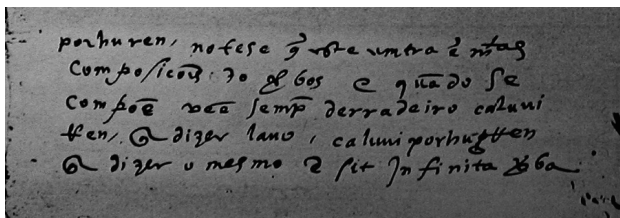 porhuren, notese q̃ este umtra ẽ mtas
Composicoẽs do xbos e quãdo se
Compoẽ vẽ semp̃ derradeiro caluni
tten, dizer lavo, caluni porhutten
dizer o mesmo & sit Jnfinita xba